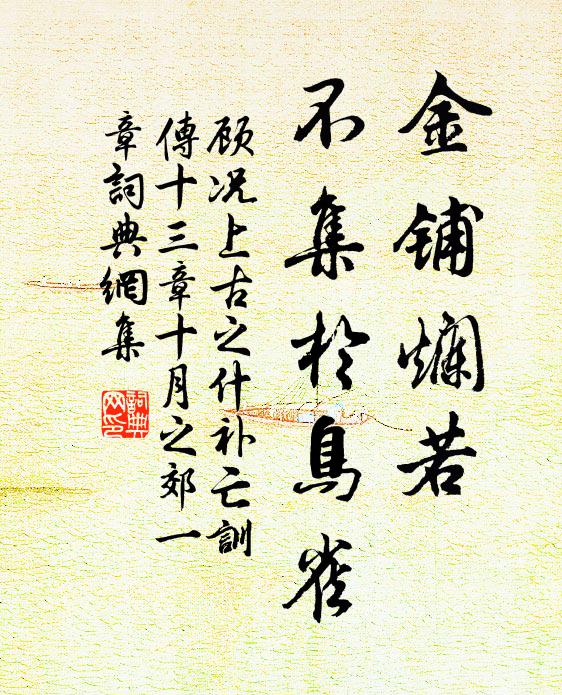 金鋪爛若
不集於鳥雀
顾况上古之什补亡訓
傳十三章十月之郊一
章詞典網集
詞典网印